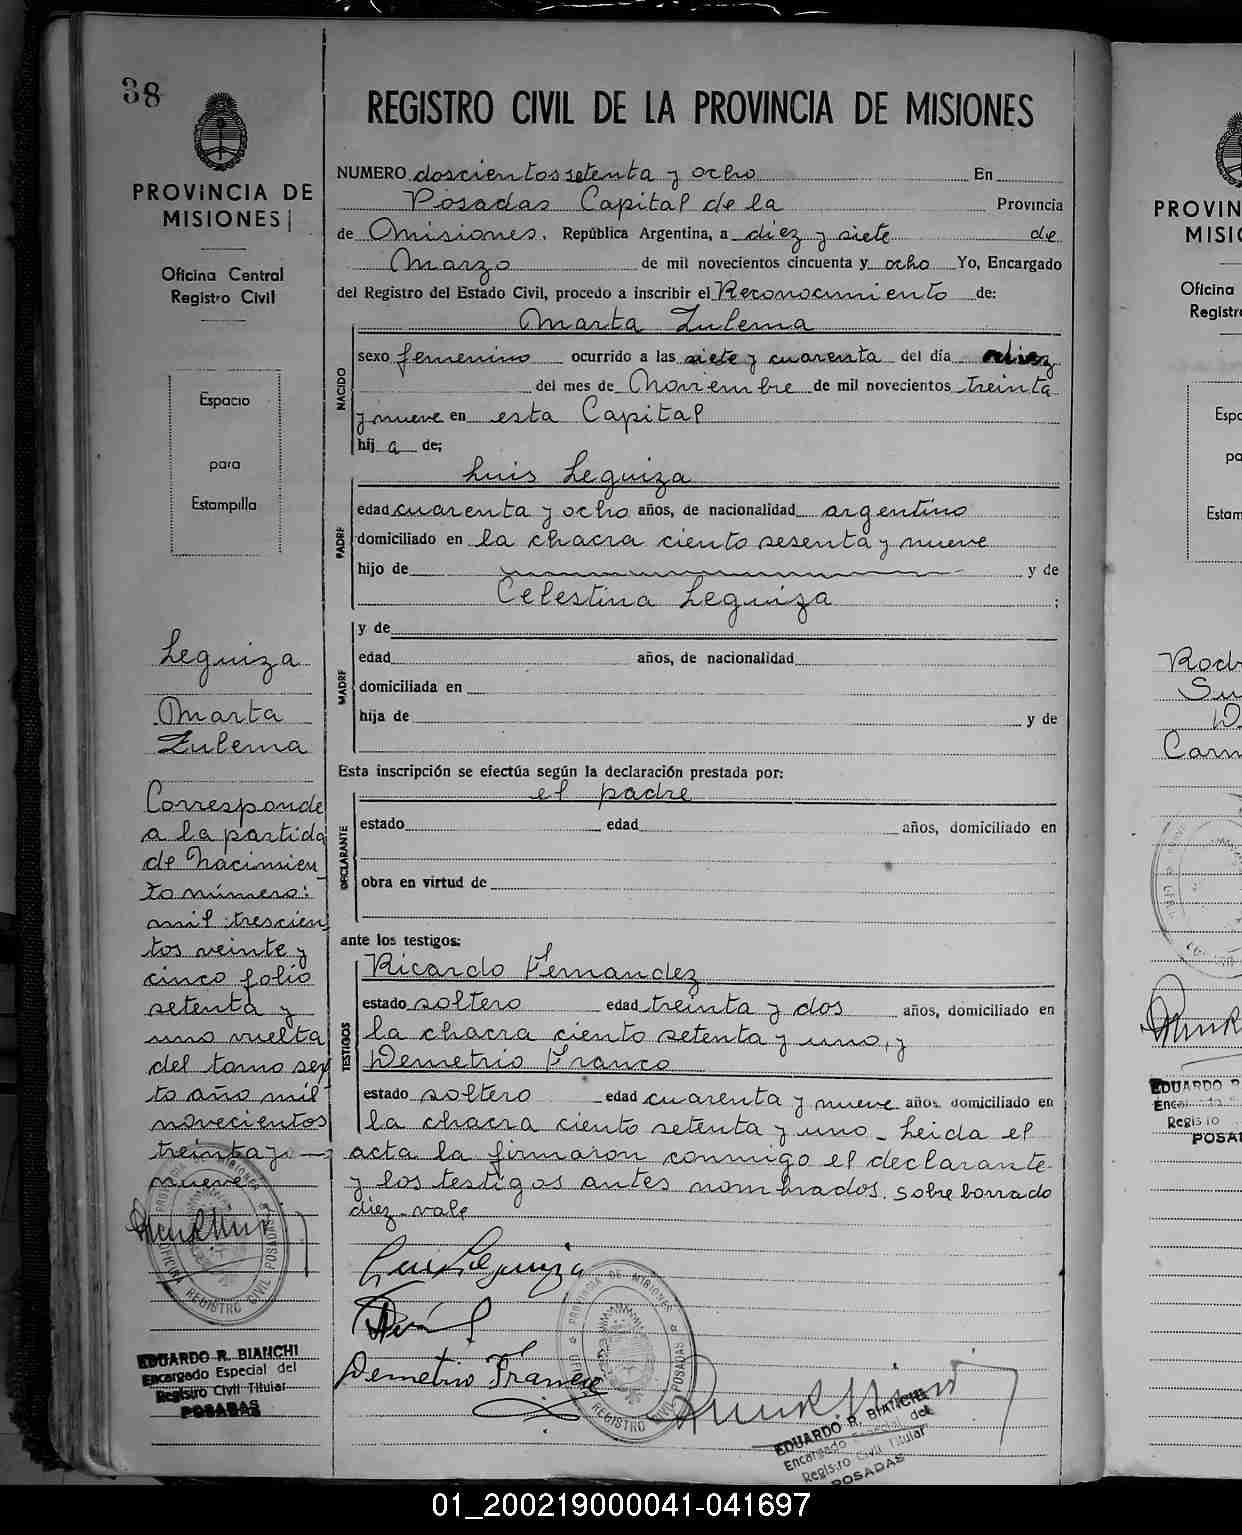 38
PROVINCIA DE
MISIONES
Oficina Central
Registro Civil
Espacio
para
Estampilla
Leguiza
Marta
Zulema
Corresponde
a la partida
de Nacimien
to número:
mil trescien
tos veinte y
cinco folio
setenta y
uno vuelta
del tomo sex
to año mil
novecientos
treinta y
nueve
EDUARDO R. BIANCHI
Encargado Especial del
Registro Civil Titular
POSADAS
REGISTRO CIVIL DE LA PROVINCIA DE MISIONES
NUMERO doscientos setenta y ocho En
Posadas Capital de la Provincia
de Misiones. República Argentina, a diez y siete de
Marzo de mil novecientos cincuenta y ocho Yo, Encargado
del Registro del Estado Civil, procedo a inscribir el Reconocimiento de:
Marta Zulema
NACIDO
sexo femenino ocurrido a las siete y cuarenta del día diez
del mes de Noviembre de mil novecientos treinta
y nueve en esta Capital
hij a de;
Luis Leguiza
PADRE
edad cuarenta y ocho años, de nacionalidad argentino
domiciliado en la chacra ciento sesenta y nueve
hijo de y de
Celestina Leguiza ;
y de
MADRE
edad años, de nacionalidad
domiciliada en
hija de y de
Esta inscripción se efectúa según la declaración prestada por:
el padre
DECLARANTE
estado edad años, domiciliado en
obra en virtud de
ante los testigos:
Ricardo Fernandez
TESTIGOS
estado soltero edad treinta y dos años, domiciliado en
la chacra ciento setenta y uno, y
Demetrio Franco
estado soltero edad cuarenta y nueve años. domiciliado en
la chacra ciento setenta y uno - Leida el
acta la firmaron conmigo el declarante
y los testigos antes nombrados. Sobre borrado
diez - vale
Luis Leguiza
Demetrio Franco
PROVINCIA DE MISIONES
OFICINA REGISTRO CIVIL POSADAS
EDUARDO R. BIANCHI
Encargado Especial del
Registro Civil Titular
POSADAS
PROVIN
MISI
Oficina
Registr
Espa
pa
Estam
Rodr
Su
Carm
EDUARDO R
Regis
POSA
01_200219000041-041697